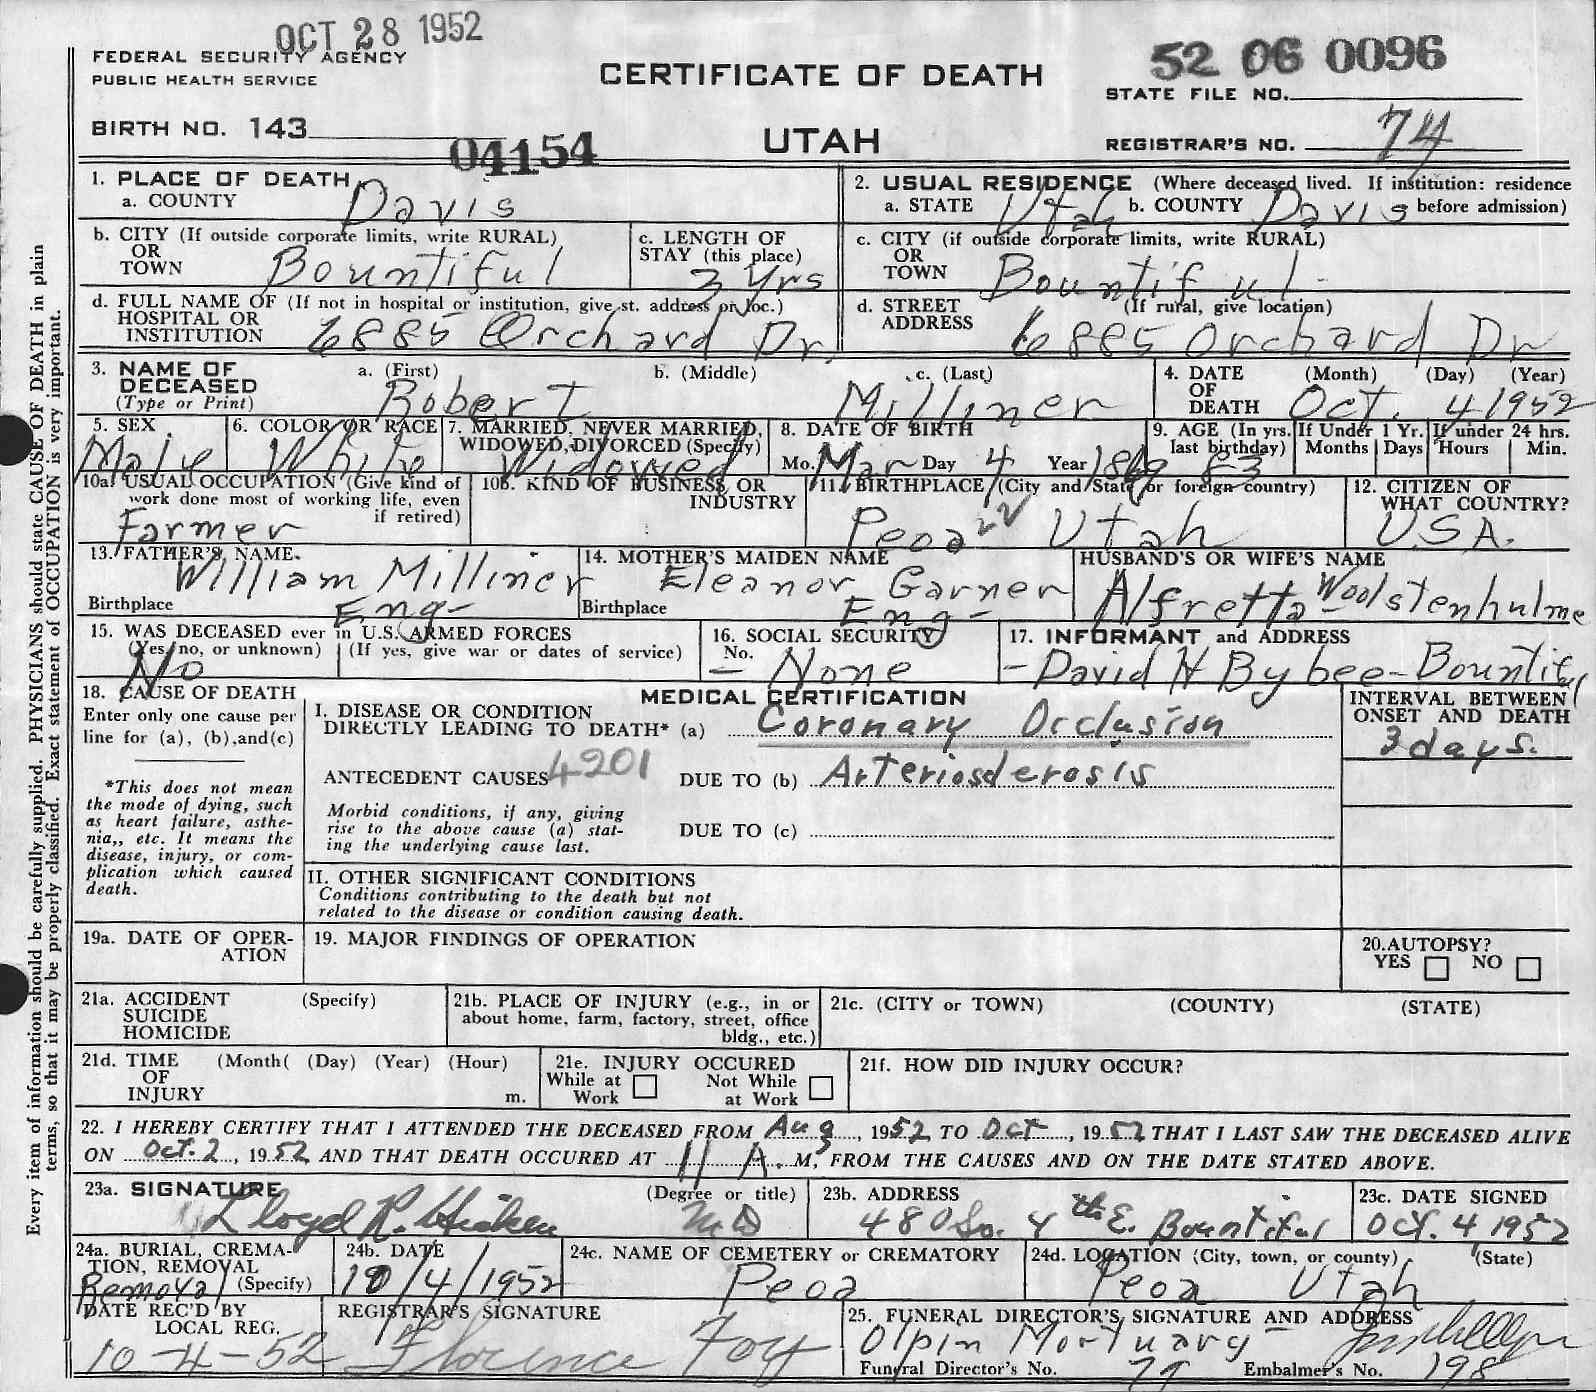 OCT 28 1952
FEDERAL SECURITY AGENCY
PUBLIC HEALTH SERVICE
CERTIFICATE OF DEATH
UTAH
52 06 0096
STATE FILE NO.
BIRTH NO. 143
04154
REGISTRAR'S NO. 74
1. PLACE OF DEATH
a. COUNTY Davis
2. USUAL RESIDENCE (Where deceased lived. If institution: residence
a. STATE Utah b. COUNTY Davis before admission)
b. CITY (If outside corporate limits, write RURAL)
OR
TOWN Bountiful
c. LENGTH OF
STAY (this place)
3 Yrs
c. CITY (if outside corporate limits, write RURAL)
OR
TOWN Bountiful
d. FULL NAME OF (If not in hospital or institution, give st. address or loc.)
HOSPITAL OR
INSTITUTION 6885 Orchard Dr.
d. STREET (If rural, give location)
ADDRESS 6885 Orchard Dr
3. NAME OF
DECEASED
(Type or Print)
a. (First) b. (Middle) c. (Last)
Robert Milliner
4. DATE (Month) (Day) (Year)
OF
DEATH Oct. 4 1952
5. SEX
Male
6. COLOR OR RACE
White
7. MARRIED, NEVER MARRIED,
WIDOWED, DIVORCED (Specify)
Widowed
8. DATE OF BIRTH
Mo. Mar Day 4 Year 1869
9. AGE (In yrs.
last birthday)
83
If Under 1 Yr.
Months Days
If under 24 hrs.
Hours Min.
10a. USUAL OCCUPATION (Give kind of
work done most of working life, even
if retired)
Farmer
10b. KIND OF BUSINESS OR
INDUSTRY
11. BIRTHPLACE (City and State or foreign country)
Peoa 22 Utah
12. CITIZEN OF
WHAT COUNTRY?
U.S.A.
13. FATHER'S NAME
William Milliner
Birthplace Eng-
14. MOTHER'S MAIDEN NAME
Eleanor Garner
Birthplace Eng-
HUSBAND'S OR WIFE'S NAME
Alfretta Woolstenhulme
15. WAS DECEASED ever in U.S. ARMED FORCES
(Yes, no, or unknown) (If yes, give war or dates of service)
No
16. SOCIAL SECURITY
No.
- None
17. INFORMANT and ADDRESS
- David H Bybee - Bountiful
18. CAUSE OF DEATH
Enter only one cause per
line for (a), (b), and (c)
*This does not mean
the mode of dying, such
as heart failure, asthe-
nia,, etc. It means the
disease, injury, or com-
plication which caused
death.
MEDICAL CERTIFICATION
I. DISEASE OR CONDITION
DIRECTLY LEADING TO DEATH* (a) Coronary Occlusion
ANTECEDENT CAUSES 4201 DUE TO (b) Arteriosclerosis
Morbid conditions, if any, giving
rise to the above cause (a) stat-
ing the underlying cause last.
DUE TO (c)
INTERVAL BETWEEN
ONSET AND DEATH
3 days.
II. OTHER SIGNIFICANT CONDITIONS
Conditions contributing to the death but not
related to the disease or condition causing death.
19a. DATE OF OPER-
ATION
19. MAJOR FINDINGS OF OPERATION
20. AUTOPSY?
YES NO
21a. ACCIDENT (Specify)
SUICIDE
HOMICIDE
21b. PLACE OF INJURY (e.g., in or
about home, farm, factory, street, office
bldg., etc.)
21c. (CITY or TOWN) (COUNTY) (STATE)
21d. TIME (Month( (Day) (Year) (Hour)
OF
INJURY m.
21e. INJURY OCCURED
While at Work Not While at Work
21f. HOW DID INJURY OCCUR?
22. I HEREBY CERTIFY THAT I ATTENDED THE DECEASED FROM Aug, 1952 TO Oct, 1952 THAT I LAST SAW THE DECEASED ALIVE
ON Oct. 2, 1952 AND THAT DEATH OCCURED AT 11 A.M, FROM THE CAUSES AND ON THE DATE STATED ABOVE.
23a. SIGNATURE (Degree or title)
Lloyd R. Hicken M D
23b. ADDRESS
480 So. 4th E. Bountiful
23c. DATE SIGNED
Oct. 4 1952
24a. BURIAL, CREMA-
TION, REMOVAL
(Specify)
Removal
24b. DATE
10/4/1952
24c. NAME OF CEMETERY or CREMATORY
Peoa
24d. LOCATION (City, town, or county) (State)
Peoa Utah
DATE REC'D BY
LOCAL REG.
10-4-52
REGISTRAR'S SIGNATURE
Florence Foy
25. FUNERAL DIRECTOR'S SIGNATURE AND ADDRESS
Olpin Mortuary
Funeral Director's No. 77 Embalmer's No. 198
Every item of information should be carefully supplied. PHYSICIANS should state CAUSE OF DEATH in plain
terms, so that it may be properly classified. Exact statement of OCCUPATION is very important.